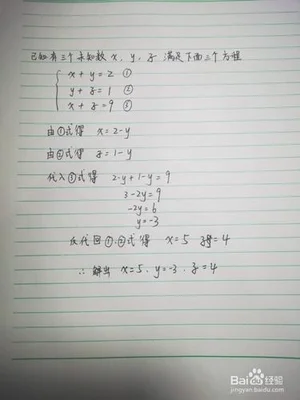 已知有三个未知数 x, y, z 满足下面三个方程
x + y = 2 ①
y + z = 1 ②
x + z = 9 ③
由①式得 x = 2-y
由②式得 z = 1-y
代入③式得 2-y+1-y=9
3-2y=9
-2y=6
y=-3
反代回①、②式得 x=5 z=4
∴ 解出 x=5、y=-3、z=4
Bai度经验
jingyan.baidu.com